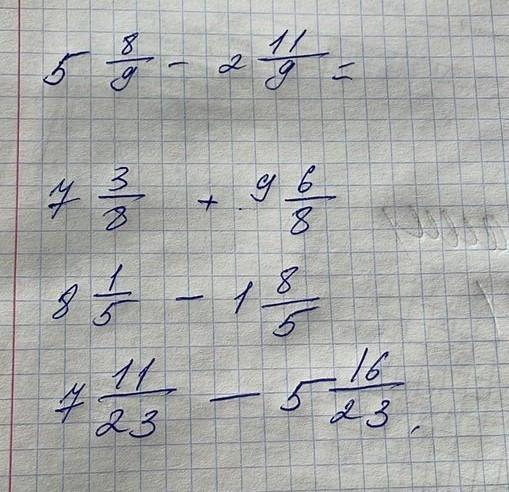 5 8/9 - 2 11/9 =
7 3/8 + 9 6/8
8 1/5 - 1 8/5
7 11/23 - 5 16/23.